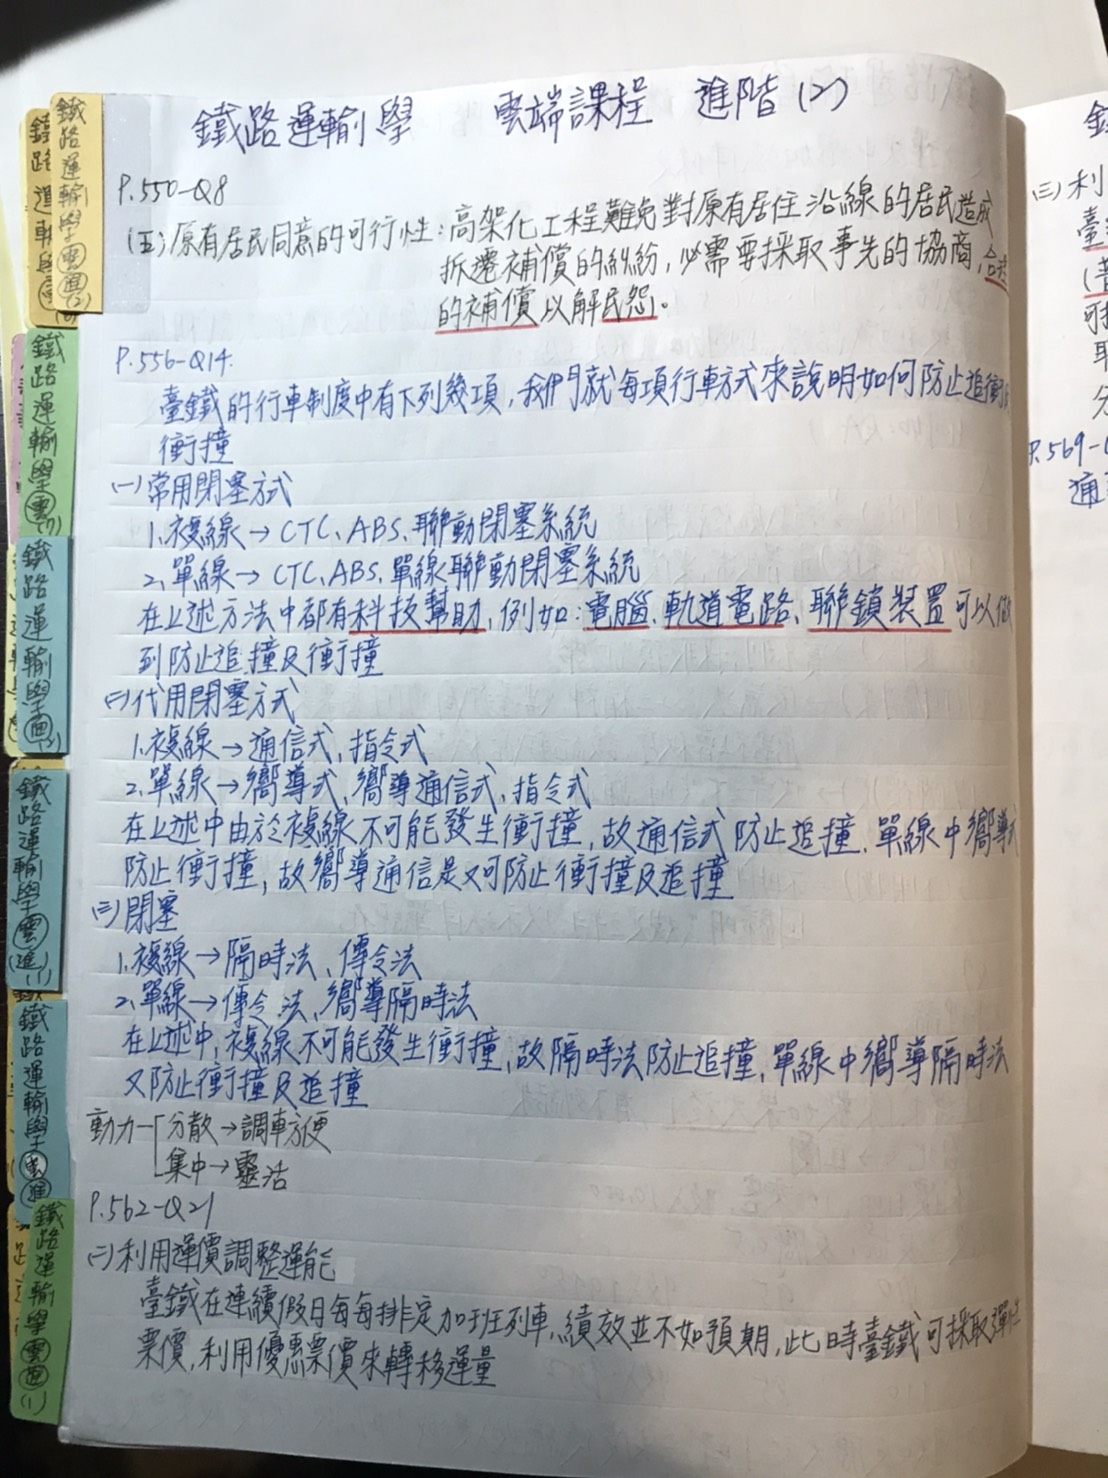 鐵路運輸學 雲端課程 進階(2)
P.550-Q8
(五)原有居民同意的可行性：高架化工程難免對原有居住沿線的居民造成
拆遷補償的糾紛，必需要採取事先的協商，合理
的補償以解民怨。
P.556-Q14.
臺鐵的行車制度中有下列幾項，我們就每項行車方式來說明如何防止追衝
衝撞
(一)常用閉塞方式
1.複線→CTC、ABS、聯動閉塞系統
2.單線→CTC、ABS、單線聯動閉塞系統
在上述方法中都有科技幫助，例如：電腦、軌道電路、聯鎖裝置可以做
到防止追撞及衝撞
(二)代用閉塞方式
1.複線→通信式、指令式
2.單線→嚮導式、嚮導通信式、指令式
在上述中由於複線不可能發生衝撞，故通信式防止追撞，單線中嚮導式
防止衝撞，故嚮導通信是又可防止衝撞及追撞
(三)閉塞
1.複線→隔時法、傳令法
2.單線→傳令法、嚮導隔時法
在上述中，複線不可能發生衝撞，故隔時法防止追撞，單線中嚮導隔時法
又防止衝撞及追撞
動力 分散→調車方便
集中→靈活
P.562-Q21
(二)利用運價調整運能
臺鐵在連續假日每每排定加班列車，績效並不如預期，此時臺鐵可採取彈性
票價，利用優惠票價來轉移運量
鐵路運輸學 雲 面 (2)
鐵路運輸學 雲 (1)
鐵路運輸學 面 (2)
鐵路運輸學 雲 進 (1)
鐵路運輸學 進
鐵路運輸學 雲 面 (1)
(三)利
臺
P.569-